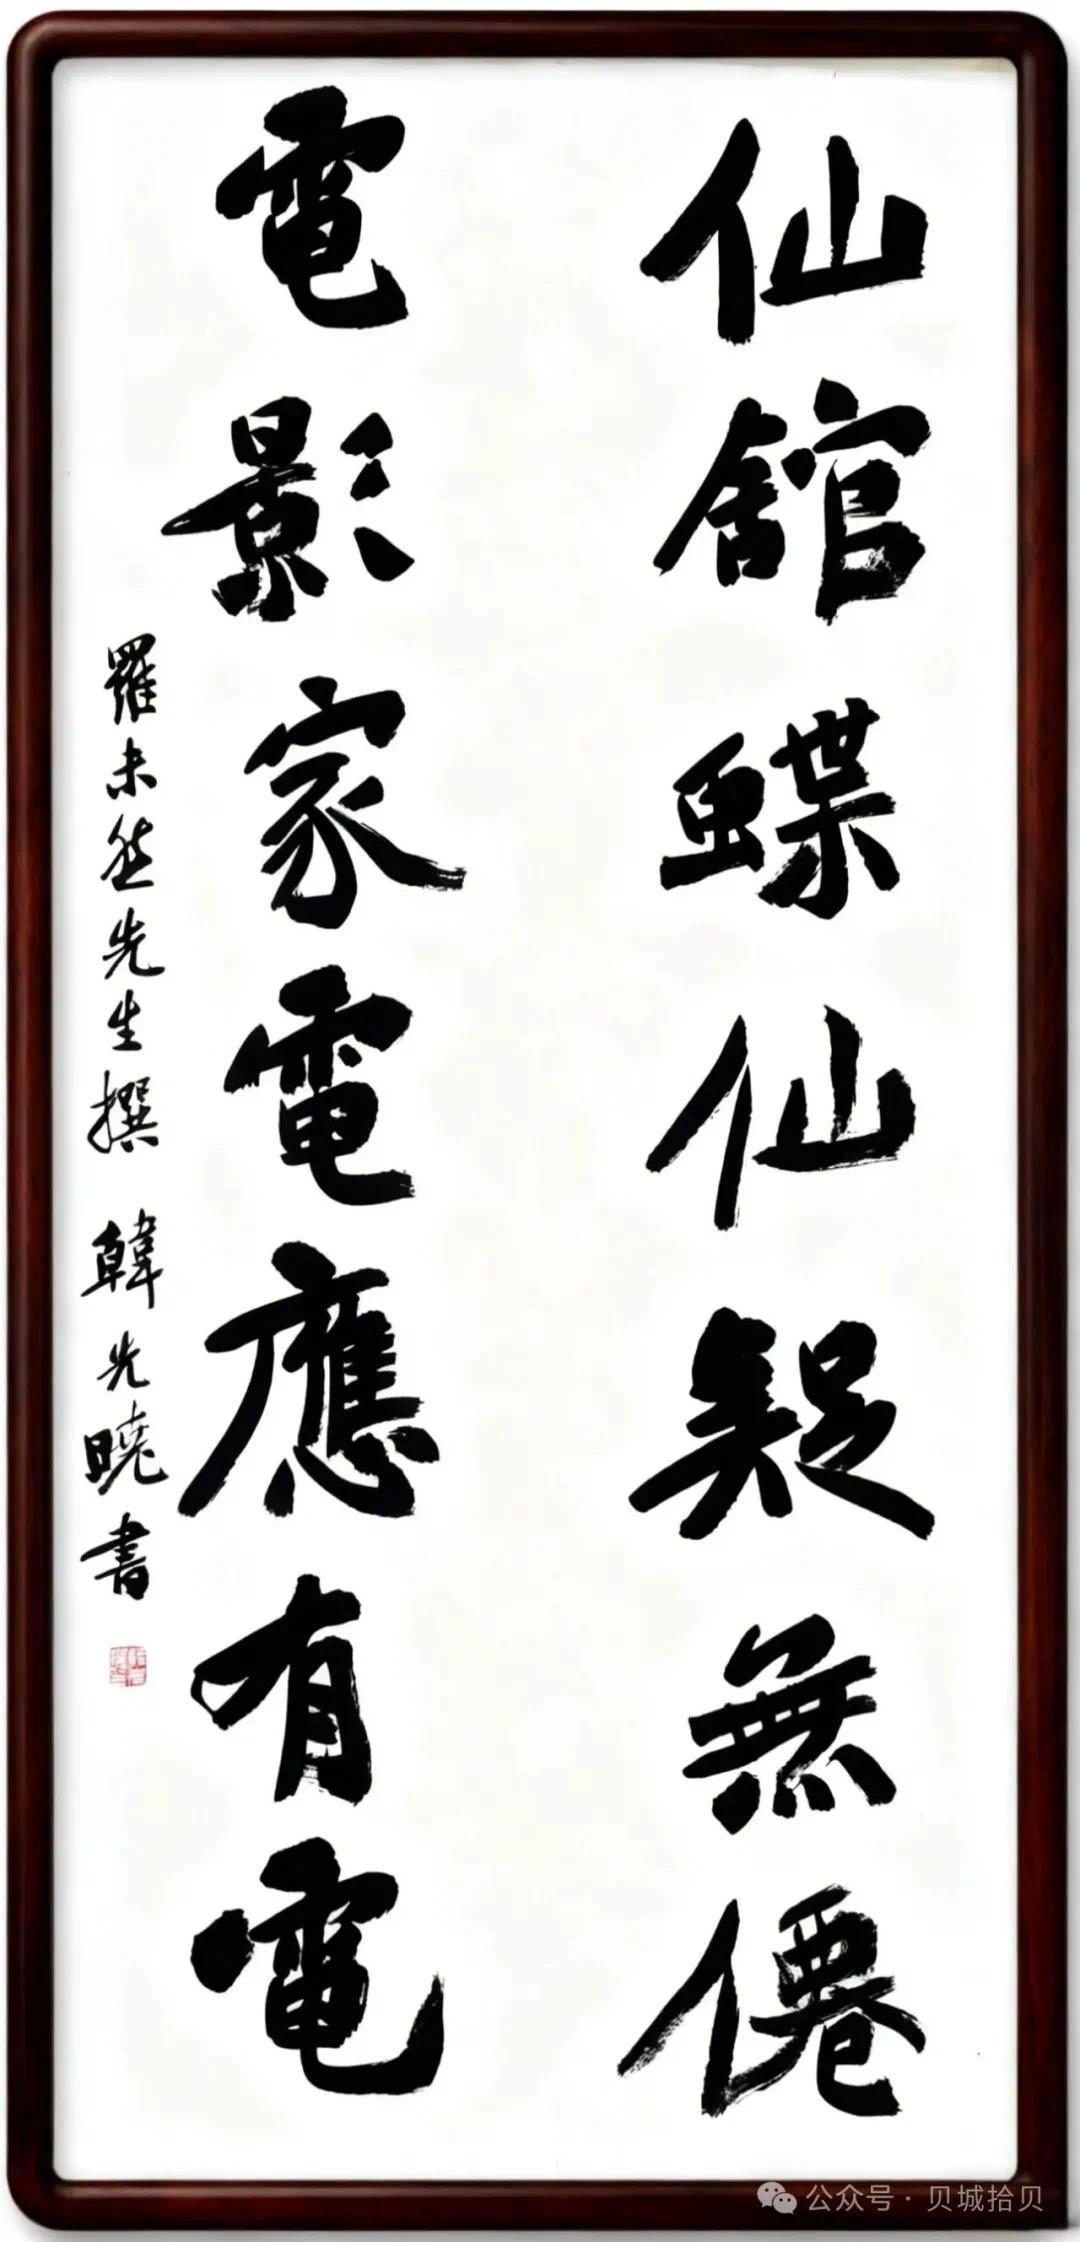 仙舘蝶仙疑無僊
電影家電應有電
羅未然先生撰 韓先曉書
公众号·贝城拾贝